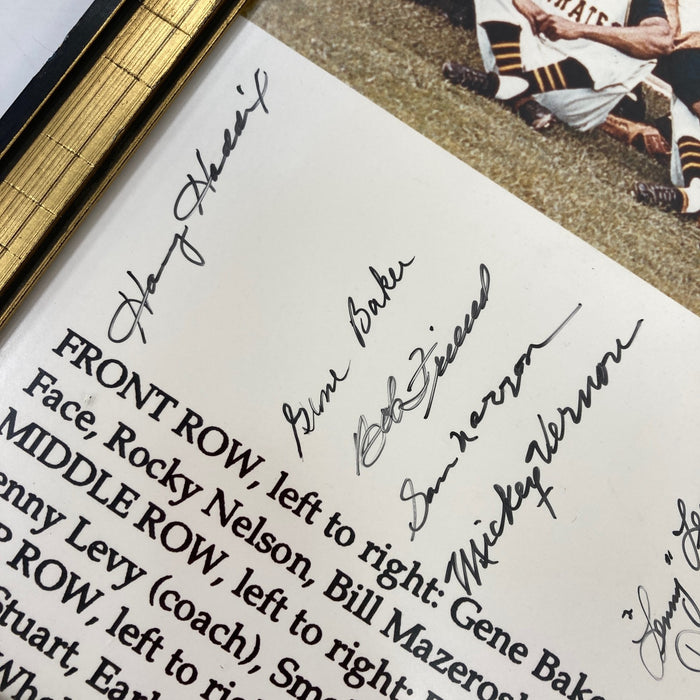 RATES
Harvey Haddix
Gene Baker
Bob Friend
Sam Narron
Mickey Vernon
"Lenny"
FRONT ROW, left to right: Gene Bak
Face, Rocky Nelson, Bill Mazeros
MIDDLE ROW, left to right:
enny Levy (coach), Smo
ROW, left to rig
Stuart, Earl